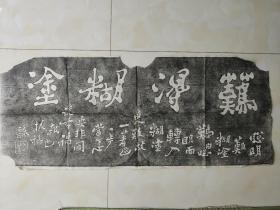 難得糊塗
聰明
難糊塗
難由聰
明而
轉入
糊塗
更難放
一著退
一步
當下心
安非圖